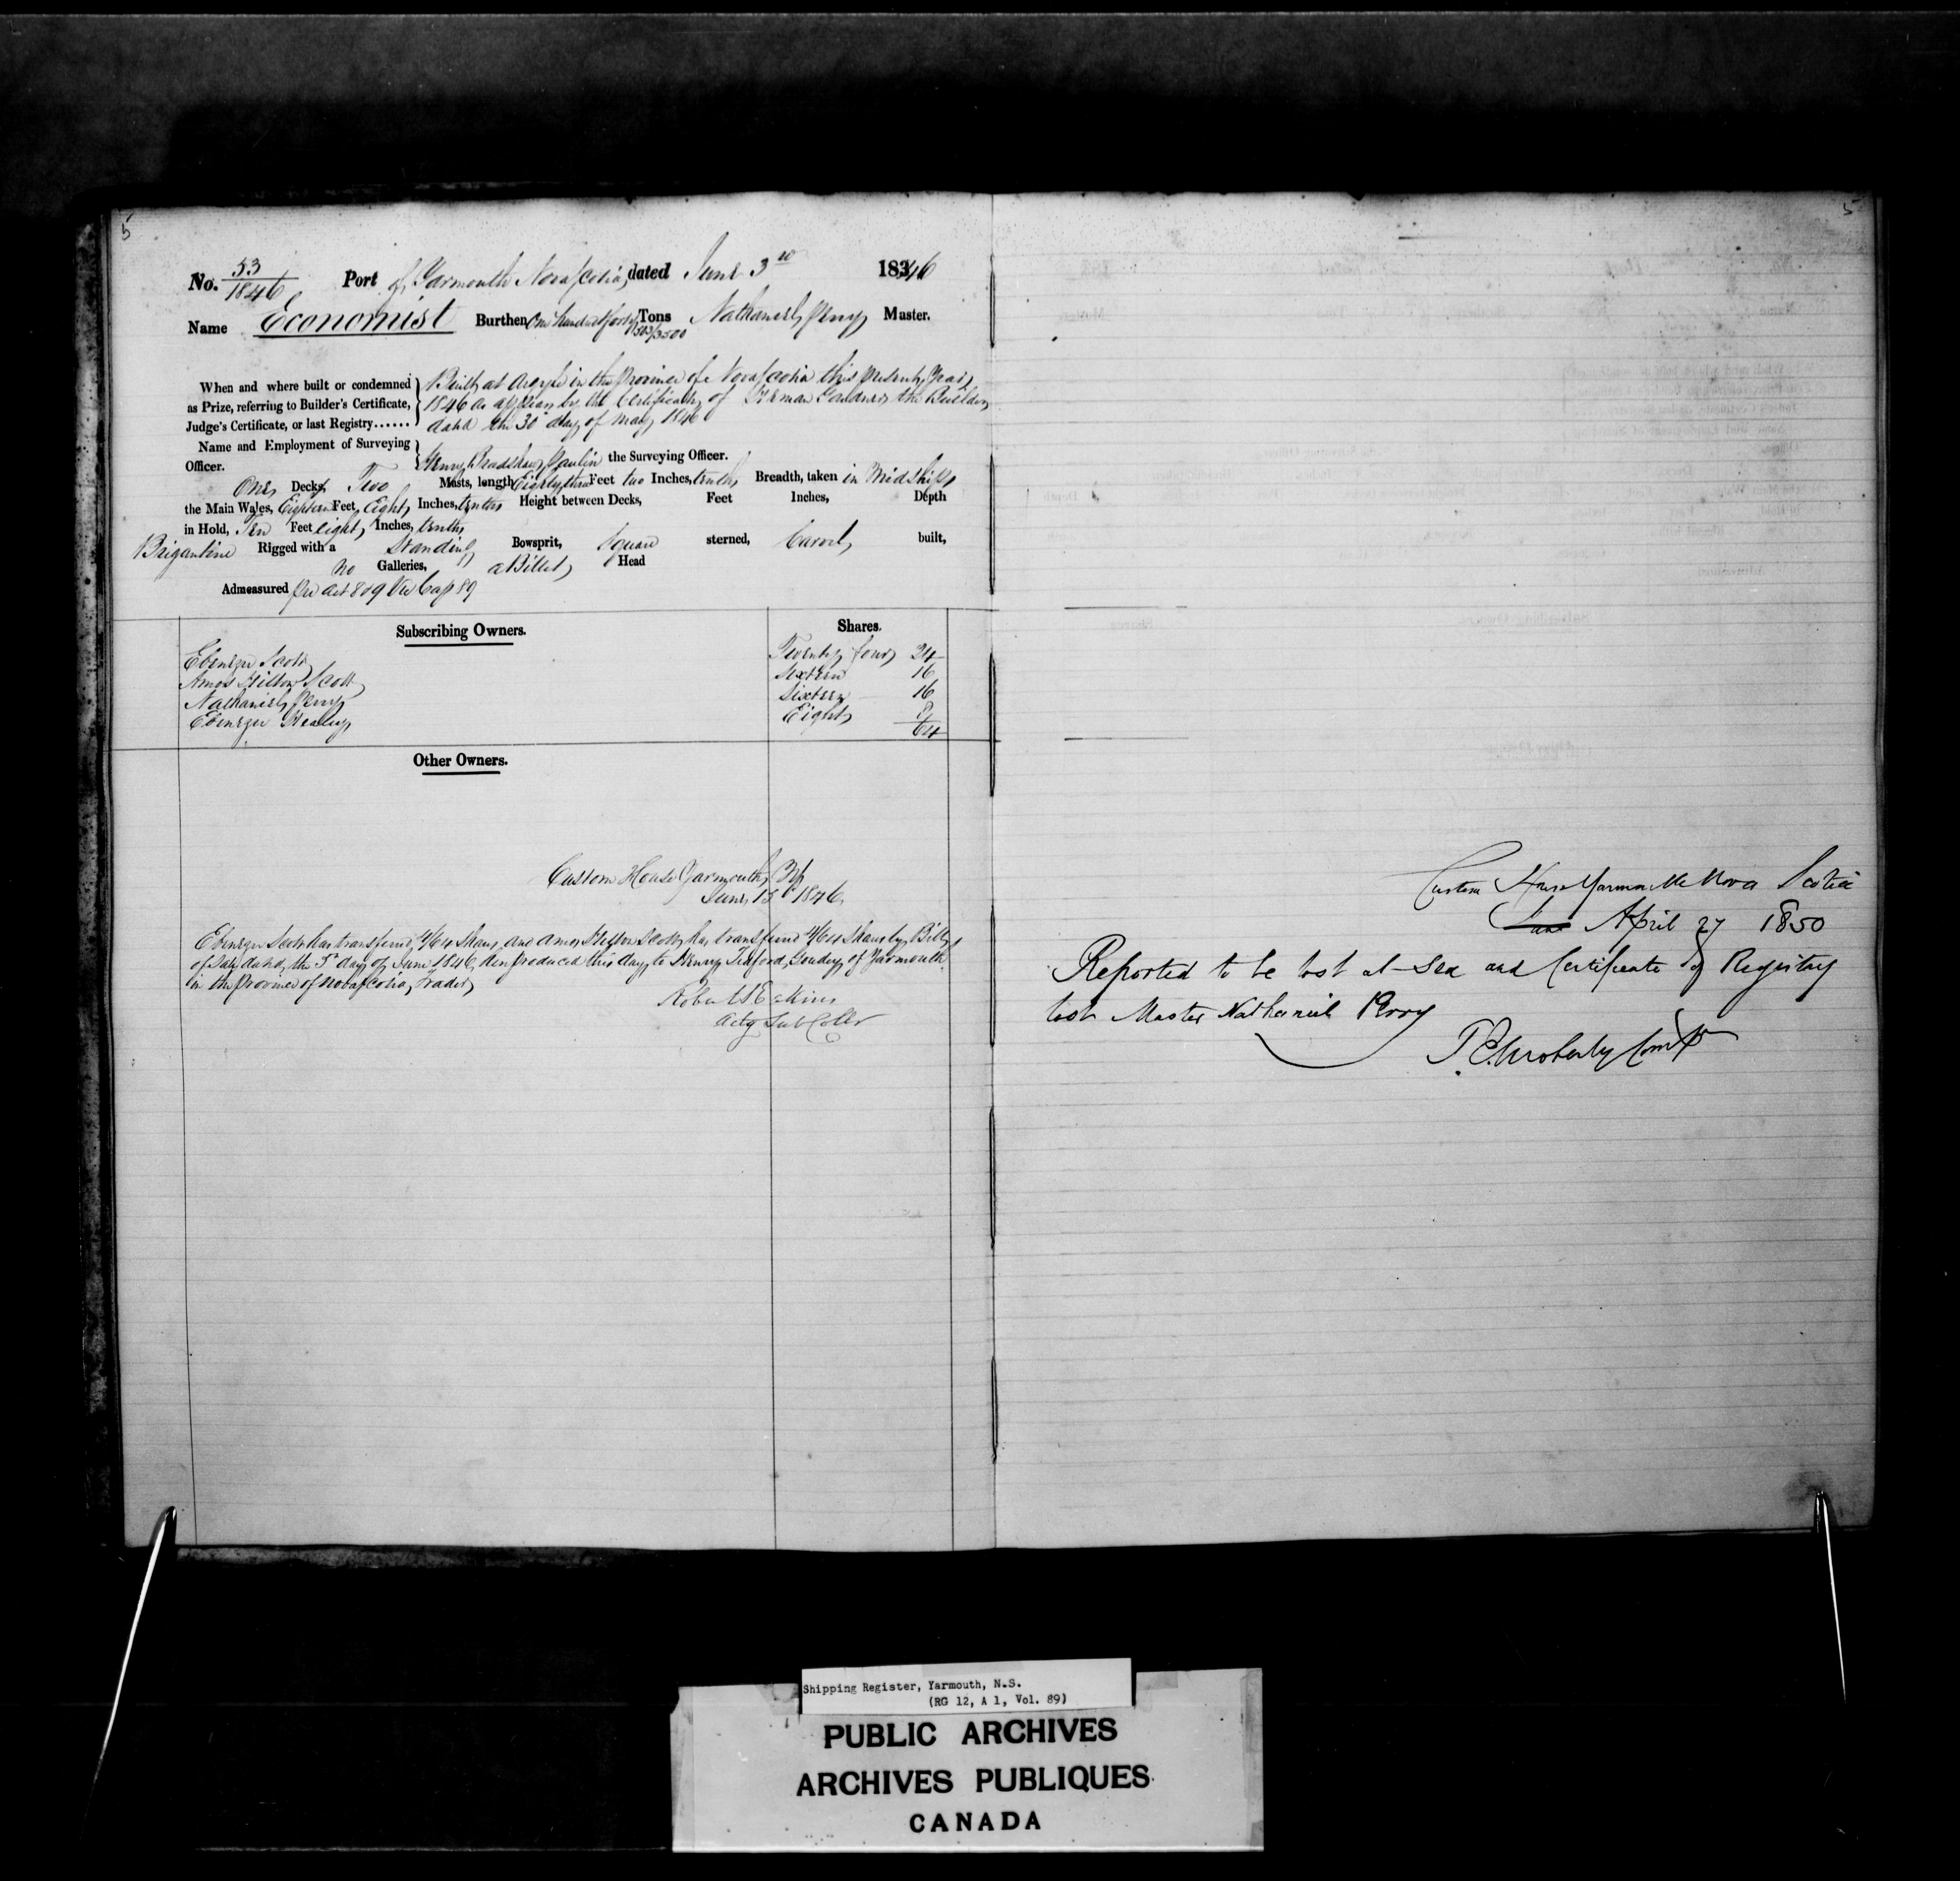 5
No. 53/1846 Port of Yarmouth Nova Scotia, dated June 3rd 1846
Name Economist Burthen One hundred forty Tons 503/3500 Nathaniel Perry Master.
When and where built or condemned as Prize, referring to Builder's Certificate, Judge's Certificate, or last Registry......
Built at Argyle in the Province of Nova Scotia this present Year
1846 as appears by the Certificate of Gardner the Builder
dated the 30 day of May 1846
Name and Employment of Surveying Officer.
Henry Bradshaw the Surveying Officer.
One Decks Two Masts, length Eighty three Feet two Inches, tenths Breadth, taken in Midships
the Main Wales, Eighteen Feet, Eight Inches, tenths Height between Decks, Feet Inches, Depth
in Hold, Ten Feet eight Inches, tenths
Brigantine Rigged with a Standing Bowsprit, Square sterned, Carvel built,
No Galleries, a Billet Head
Admeasured Per Act 8 & 9 Vic Cap 89
Subscribing Owners. Shares.
Ebenezer Scott Twenty four 24
Amos Hilton Scott Sixteen 16
Nathaniel Perry Sixteen 16
Ebenezer Healey Eight 8
64
Other Owners.
Custom House Yarmouth
June 15 1846
Ebenezer Scott has transferred 4/64 Shares, and Amos Hilton Scott has transferred 4/64 Shares by Bill
of Sale dated the 5 day of June 1846 produced this day to Henry of Yarmouth
in the Province of Nova Scotia, Trader
Robert S Eakins
Actg Sub Collr
5
Custom House Yarmouth Nova Scotia
June April 27 1850
Reported to be lost at Sea and Certificate of Registry
lost Master Nathaniel Perry
Moberly
Shipping Register, Yarmouth, N.S.
(RG 12, A 1, Vol. 89)
PUBLIC ARCHIVES
ARCHIVES PUBLIQUES
CANADA